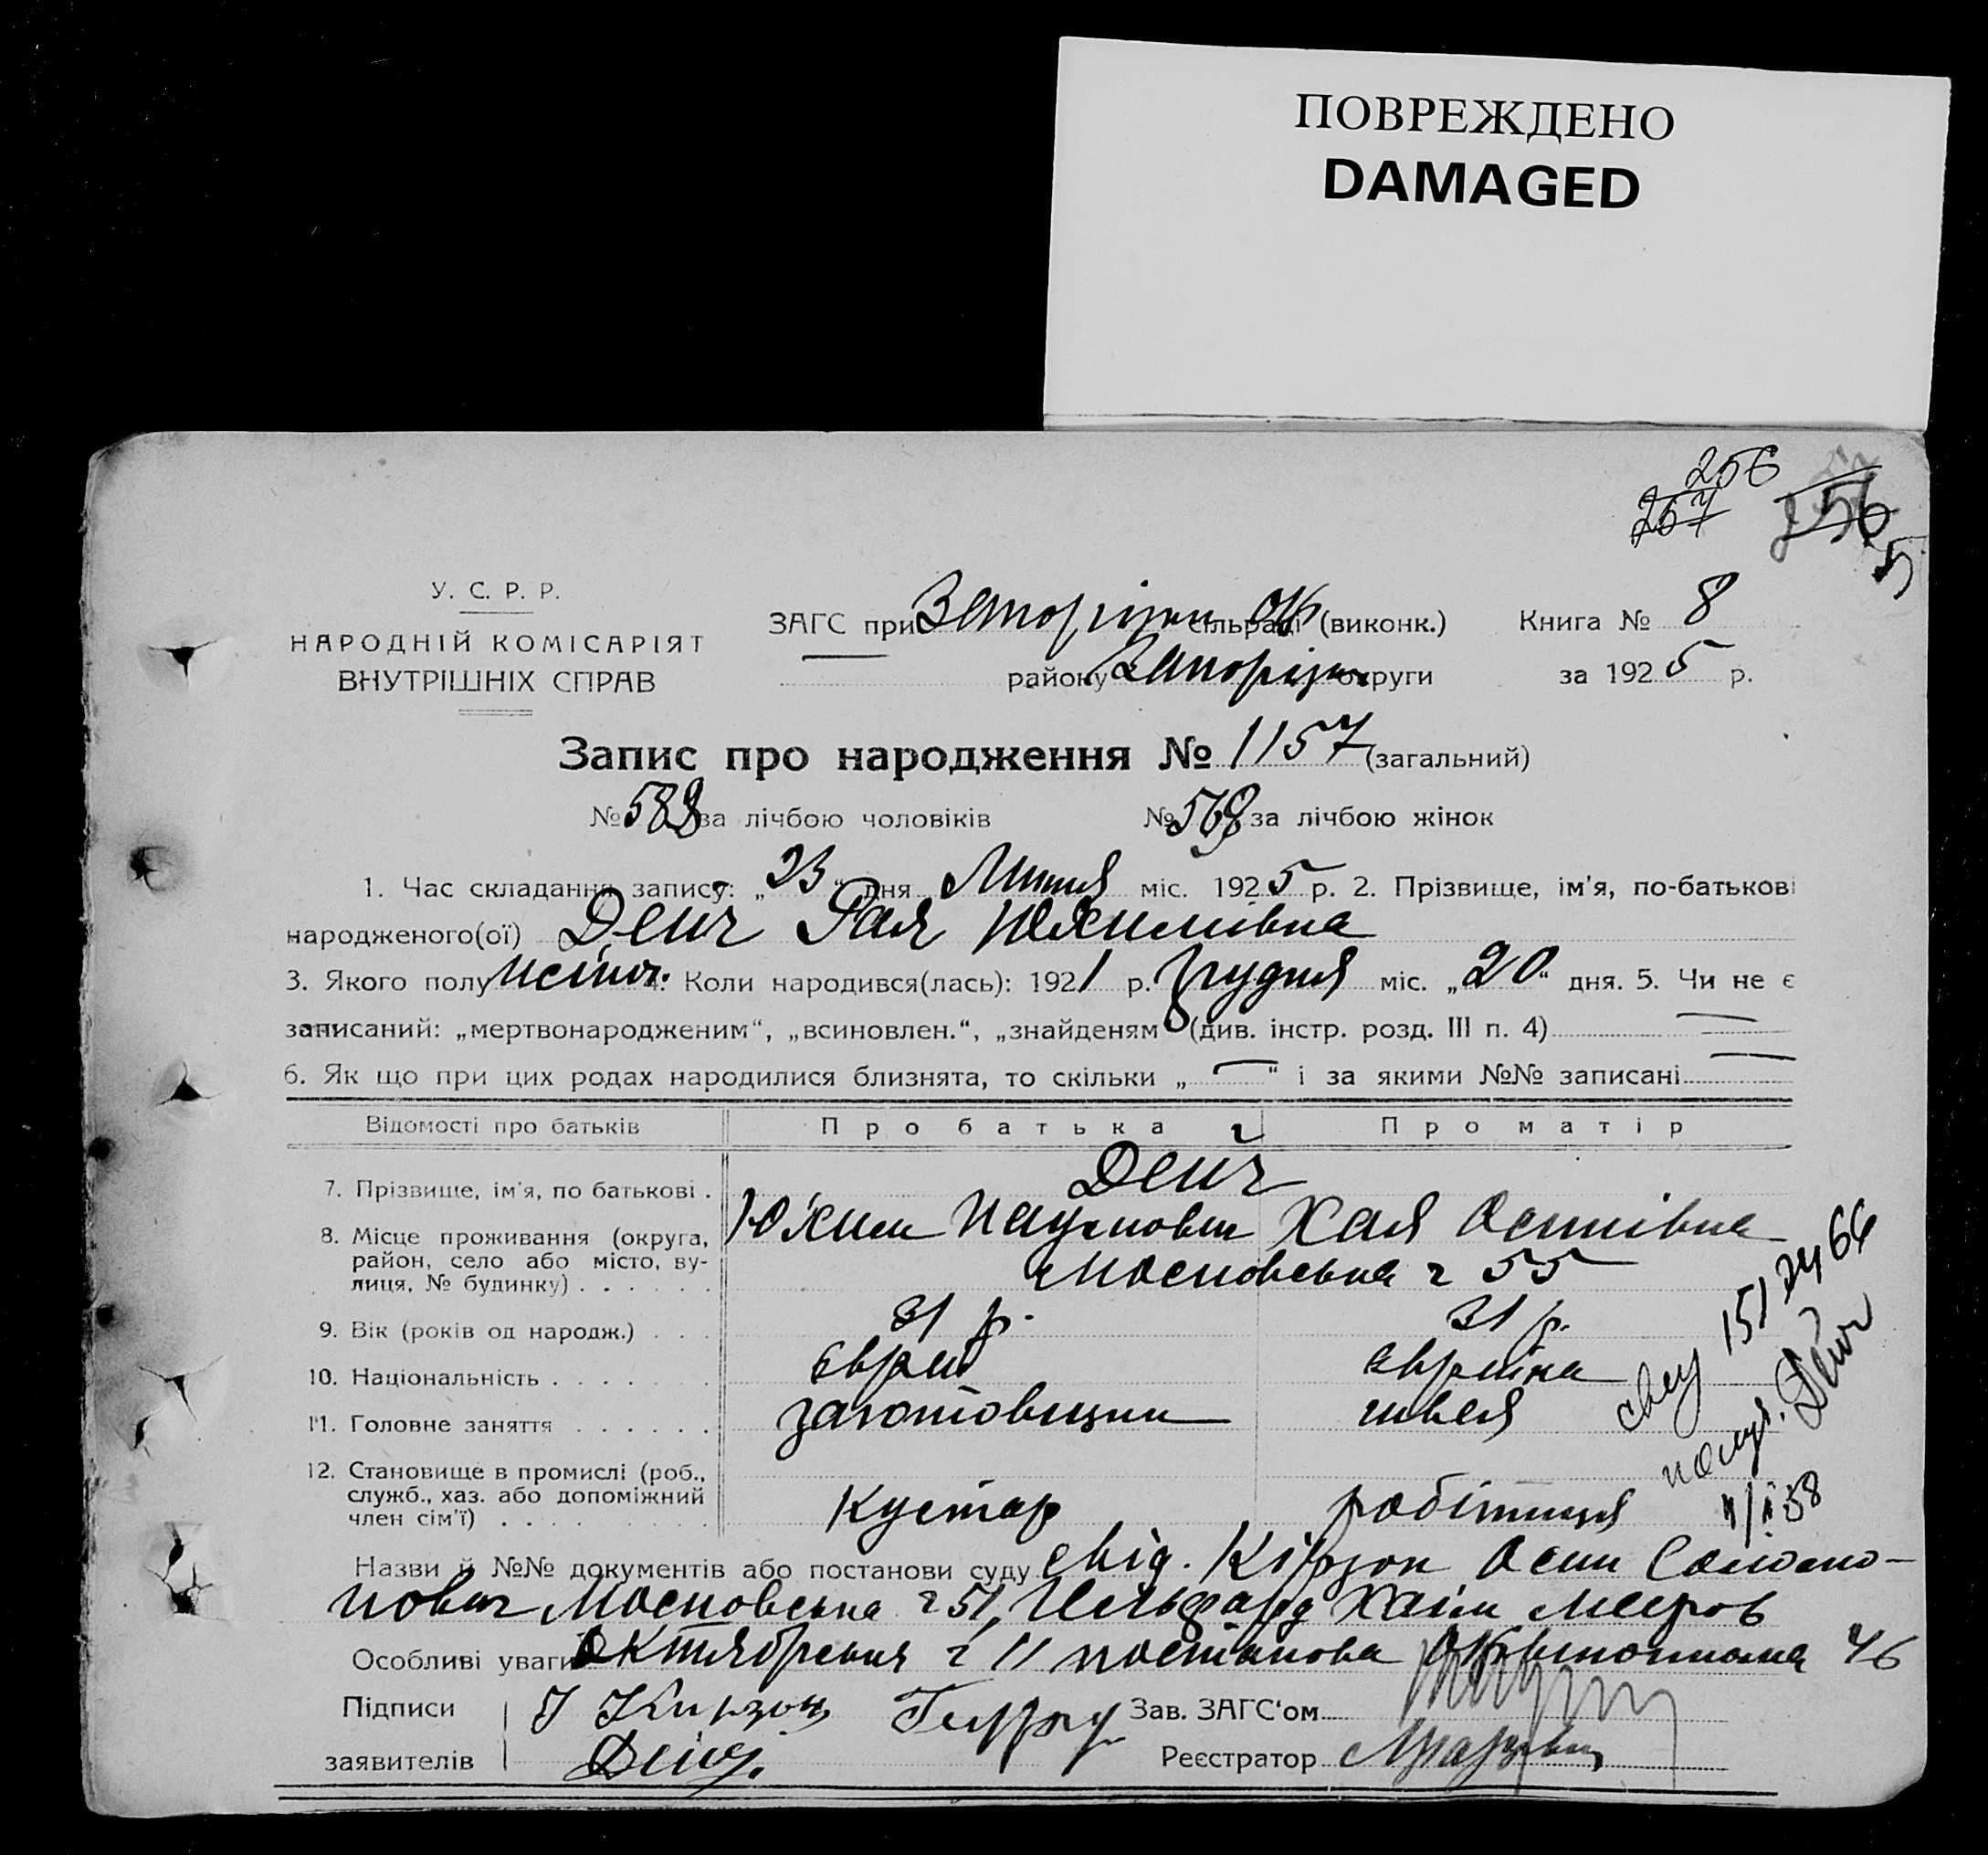 ПОВРЕЖДЕНО
DAMAGED
256
257
256
5
У. С. Р. Р.
НАРОДНІЙ КОМІСАРІЯТ
ВНУТРІШНІХ СПРАВ
ЗАГС при Запоріжськ. сільраді (виконк.) Книга № 8
району Запоріжськ округи за 1925 р.
Запис про народження № 1157 (загальний)
№ 589 за лічбою чоловіків № 568 за лічбою жінок
1. Час складання запису: „23“ дня Липня міс. 1925 р. 2. Прізвище, ім'я, по-батькові
народженого(ої) Дейч Рая Юхимівна
3. Якого полу жіноч. 4. Коли народився(лась): 1921 р. Грудня міс. „20“ дня. 5. Чи не є
записаний: „мертвонародженим“, „всиновлен.“, „знайденям“ (див. інстр. розд. III п. 4)
6. Як що при цих родах народилися близнята, то скільки „ “ і за якими №№ записані
Відомості про батьків Про батька Про матір
7. Прізвище, ім'я, по батькові . Дейч
Юхим Наумович Хая Осипівна
8. Місце проживання (округа,
район, село або місто, ву-
лиця, № будинку) . . . . . . Московська ч 55
9. Вік (років од народж.) . . . 31 р. 31 р.
10. Національність . . . . . . . єврей єврейка
11. Головне заняття . . . . . . заготовщик швея
12. Становище в промислі (роб.,
служб., хаз. або допоміжний
член сім'ї) . . . . . . . . . кустар робітниця
151 2466
получ. Дейч
Назви й №№ документів або постанови суду свід. Кірзон Осип Соломо-
нович Московська ч 51, Гельфанд Хаім Меєров
Особливі уваги Октябрська ч 11 постанова 46
Підписи
заявителів
Кирзон
Дейч.
Зав. ЗАГС'ом
Реєстратор